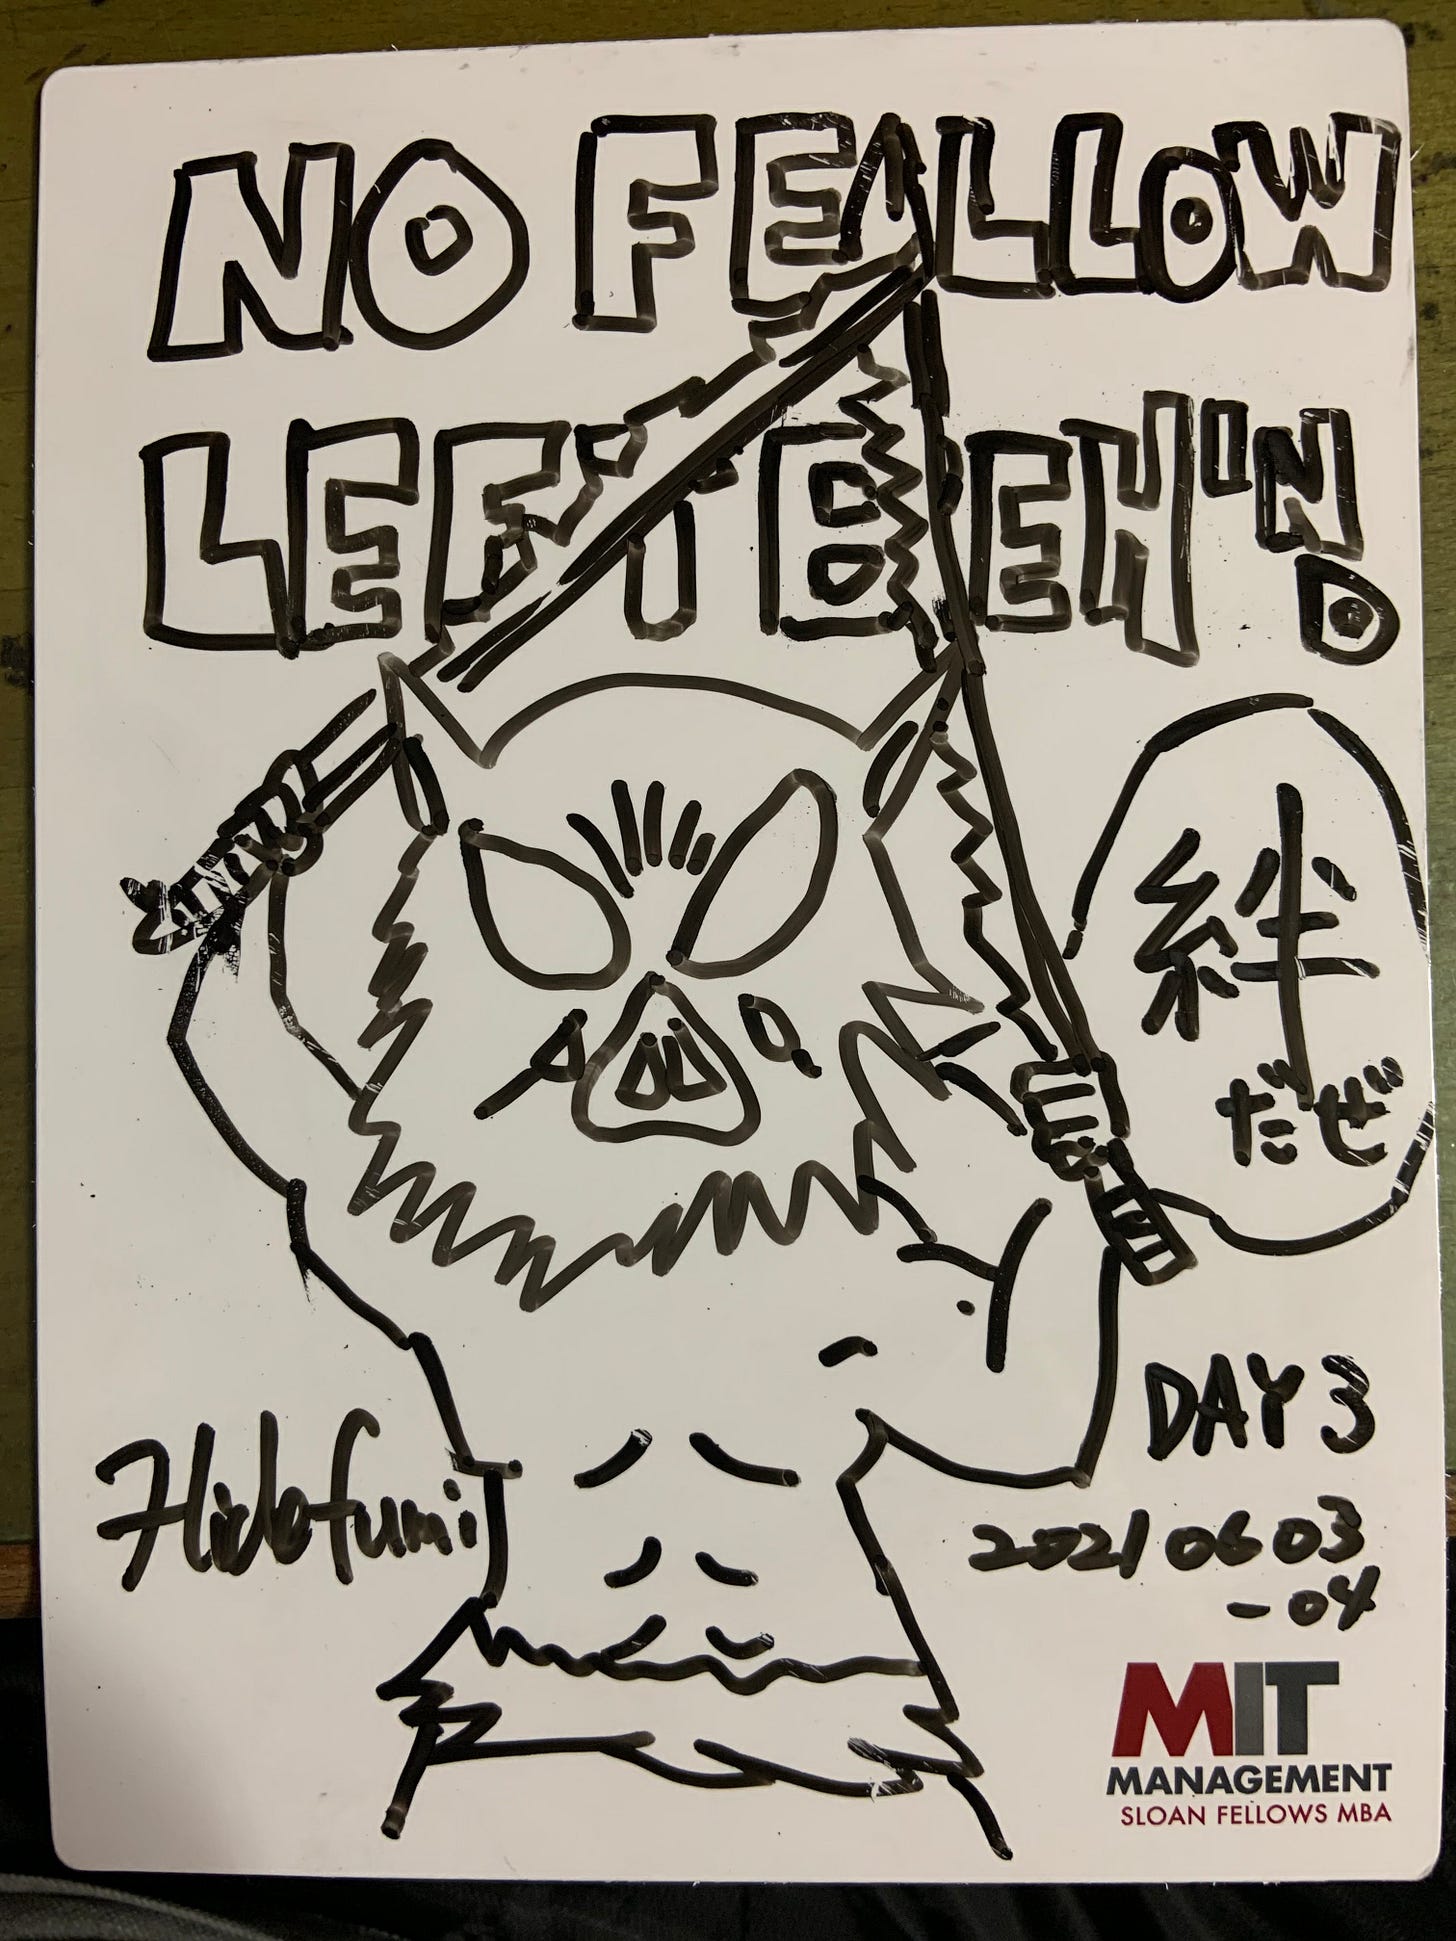 NO FELLOW
LEFT BEHIND
絆
だぜ
DAY 3
Hidefumi
2021 06 03
-04
MIT
MANAGEMENT
SLOAN FELLOWS MBA